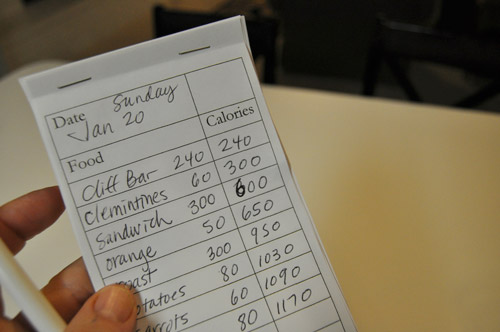 Date Sunday
Jan 20
Food Calories
Cliff Bar 240 240
Clemintines 60 300
Sandwich 300 600
orange 50 650
300 950
80 1030
60 1090
80 1170